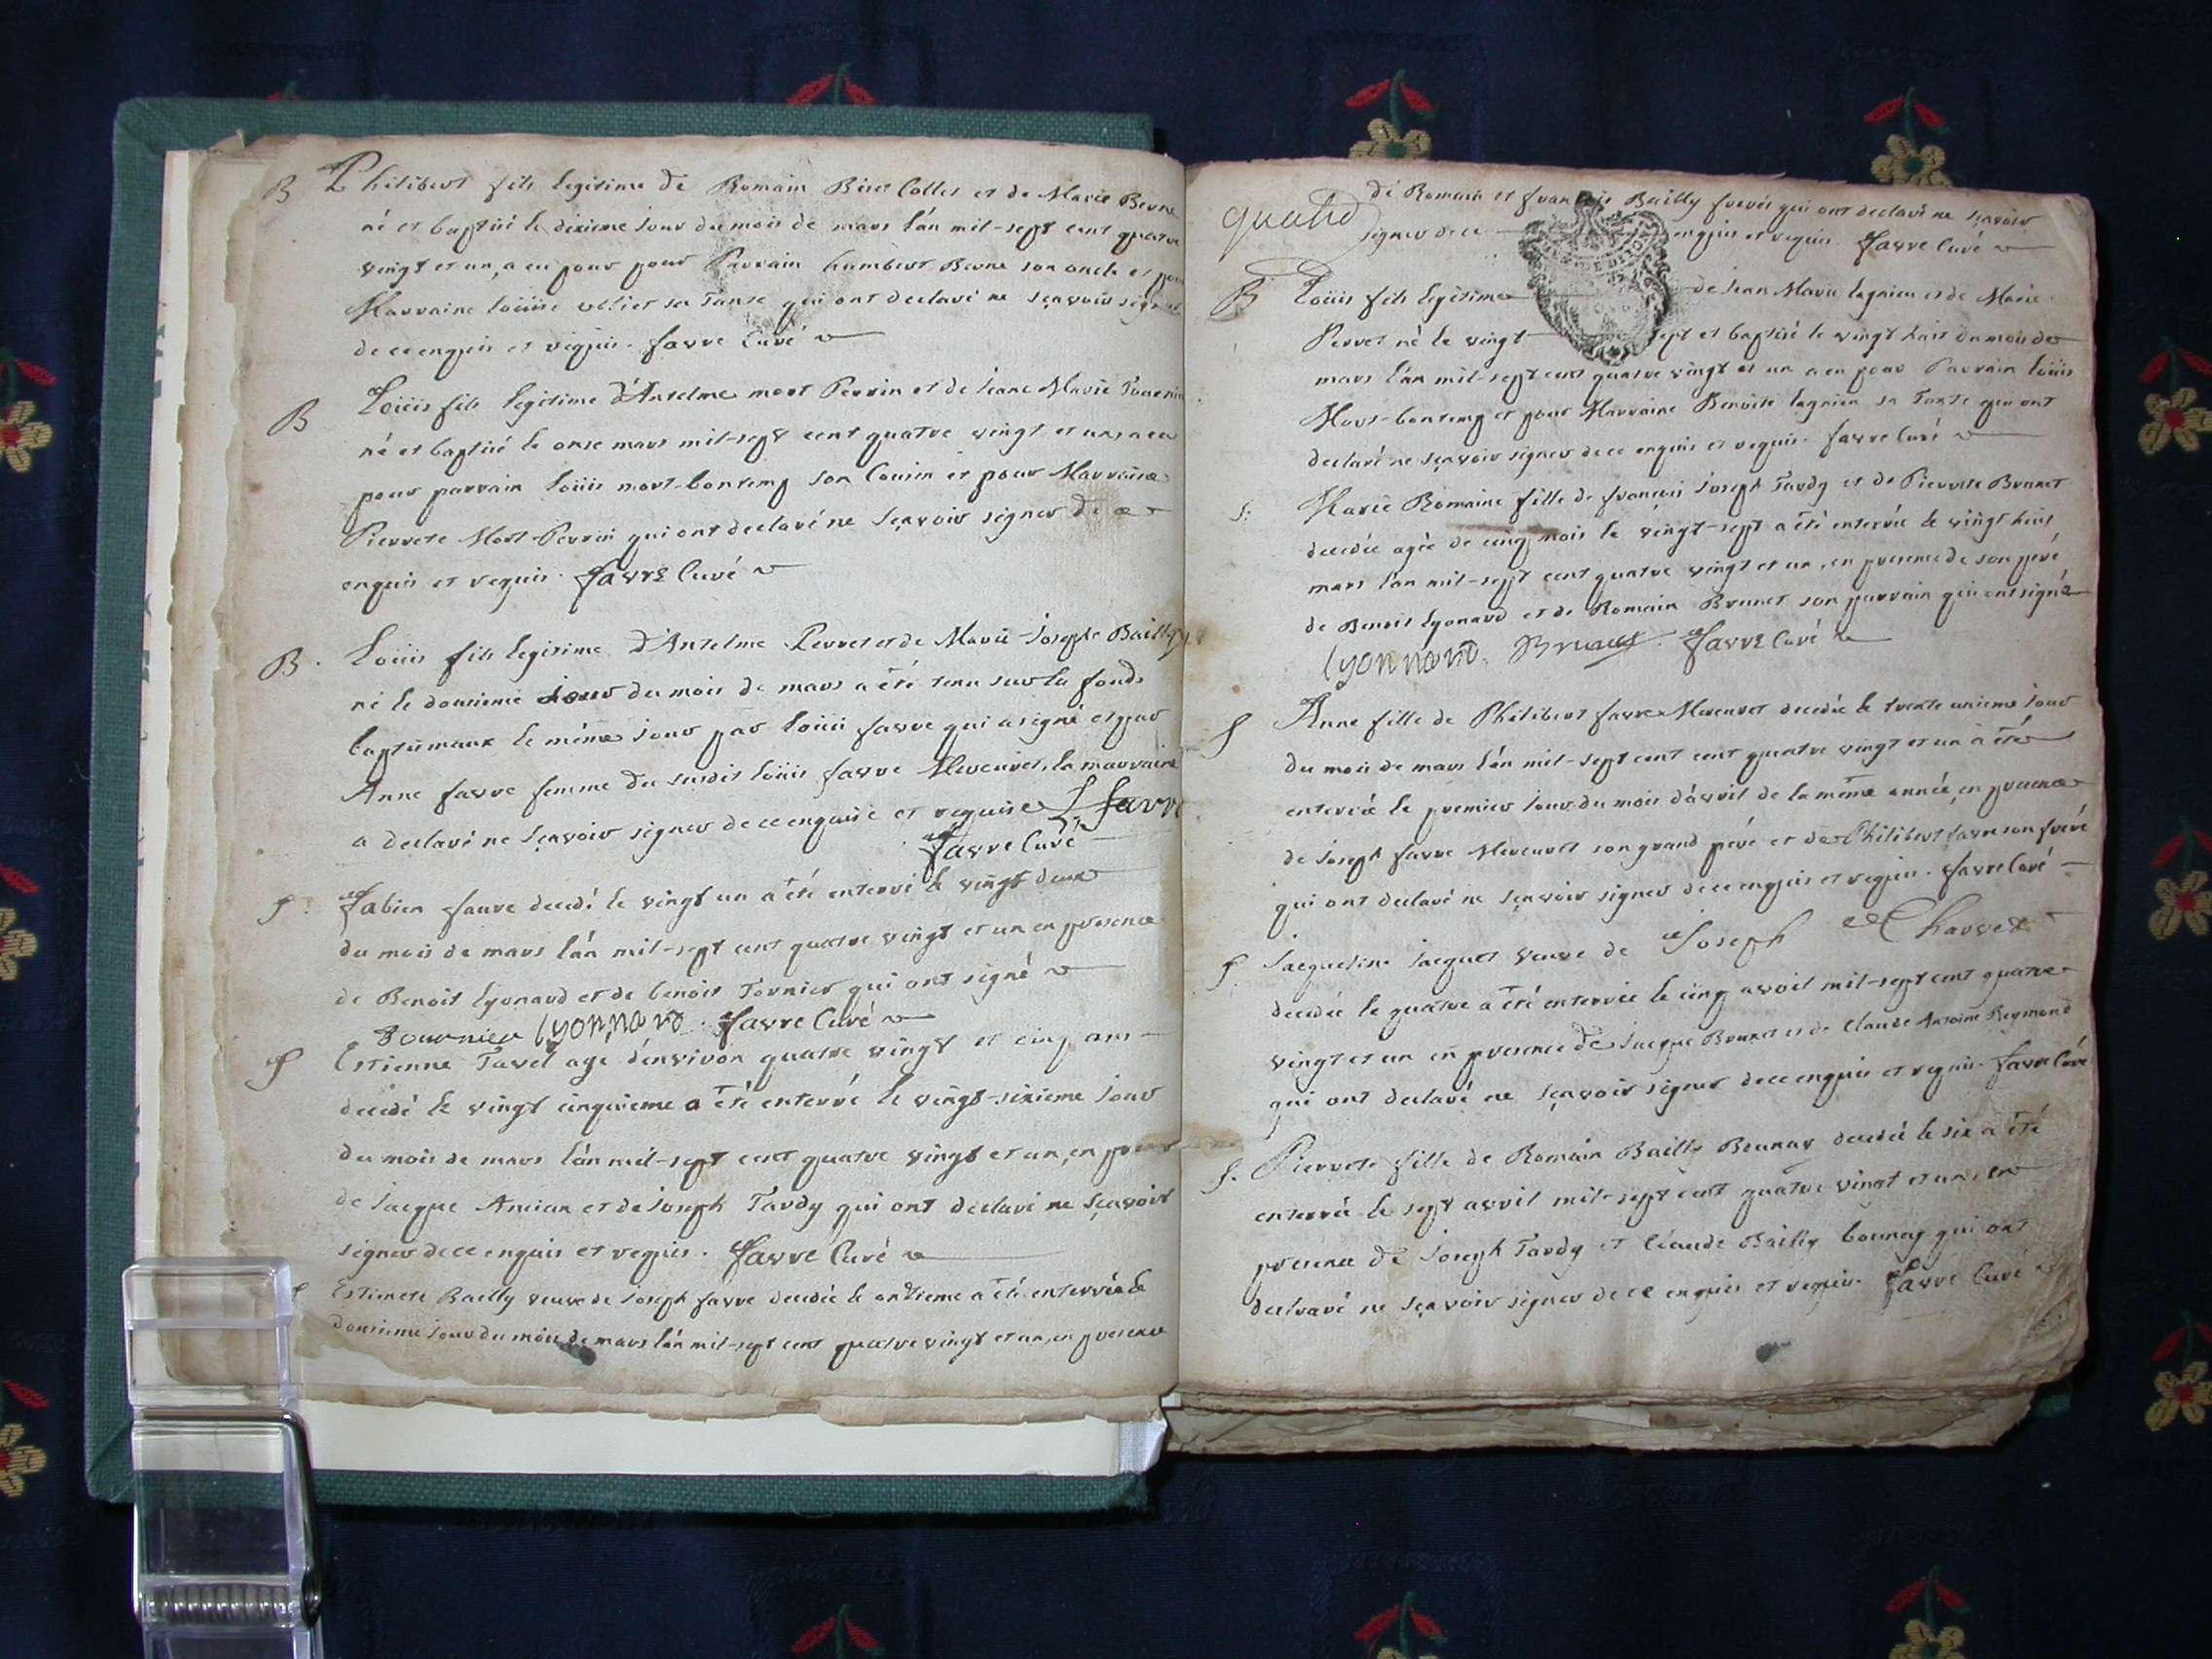 B Philibert fils legitime de Romain Biset Collet et de Marie Berne
né et baptisé le dixieme jour du mois de mars l'an mil-sept cent quatre
vingt et un, a eu pour pour Parrain humbert Berne son oncle et pour
Marraine loüise sa Tante qui ont declaré ne sçavoir signer
de ce enquis et requis. favre Curé
B Loüis fils legitime d'Antelme mort Perrin et de jeane Marie
né et baptisé le onse mars mil-sept cent quatre vingt et un, a eu
pour parrain loüis mort-bontemp son Cousin et pour Marraine
Pierrete Mort-Perrin qui ont declaré ne sçavoir signer de ce
enquis et requis. favre Curé
B. Loüis fils legitime d'Antelme Perret et de Marie-joseph Bailly
né le dousieme jour du mois de mars a été tenu sur la fonds
baptismaux le même jour par loüis favre qui a signé et par
Anne favre femme du susdit loüis favre Mercuret, la marraine
a declaré ne sçavoir signer de ce enquise et requise L favre
favre Curé
S. fabien favre decedé le vingt un a été enterré le vingt deux
du mois de mars l'an mil-sept cent quatre vingt et un en presence
de Benoit lyonard et de benoit Tornier qui ont signé
tournier lyonnard. favre Curé
S Estienne Tavel age d'environ quatre vingt et cinq ans
decedé le vingt cinquieme a été enterré le vingt-sixieme jour
du mois de mars l'an mil-sept cent quatre vingt et un, en presence
de jacque Ancian et de joseph Tardy qui ont declaré ne sçavoir
signer de ce enquis et requis. favre Curé
S Estienete Bailly veuve de joseph favre decedée le ontieme a été enterrée le
dousieme jour du mois de mars l'an mil-sept cent quatre vingt et un, en presence
de Romain et francois Bailly freres qui ont declaré ne sçavoir
signer de ce enquis et requis. favre Curé
B Loüis fils legitime de jean Marie lagnieu et de Marie
Perret né le vingt sept et baptisé le vingt huit du mois de
mars l'an mil-sept cent quatre vingt et un a eu pour Parrain loüis
Mort-bontemp et pour Marraine Benoite lagnieu sa Tante qui ont
declaré ne sçavoir signer de ce enquis et requis. favre Curé
S: Marie Romaine fille de francois joseph Tardy et de Pierrete Brunet
decedée agée de cinq mois le vingt-sept a été enterrée le vingt huit
mars l'an mil-sept cent quatre vingt et un, en presence de son pere
de Benoit lyonard et de Romain Brunet son parrain qui ont signé
lyonnard. Brunet. favre Curé
S Anne fille de Philibert favre Mercuret decedée le trente unieme jour
du mois de mars l'an mil-sept cent cent quatre vingt et un a été
enterrée le premier jour du mois d'avril de la même année, en presence
de joseph favre Mercuret son grand pere et de Philibert favre son frere
qui ont declaré ne sçavoir signer de ce enquis et requis. favre Curé
S. jacqueline jacquet veuve de joseph Charvet
decedée le quatre a été enterrée le cinq avril mil-sept cent quatre
vingt et un en presence de jacque Brunet et de Claude Antoine Reymond
qui ont declaré ne sçavoir signer de ce enquis et requis. favre Curé
S. Pierrete fille de Romain Bailly Bournay decedée le six a été
enterrée le sept avril mil-sept cent quatre vingt et un, en
presence de joseph Tardy et Claude Bailly bournay qui ont
declraré ne sçavoir signer de ce enquis et requis. favre Curé